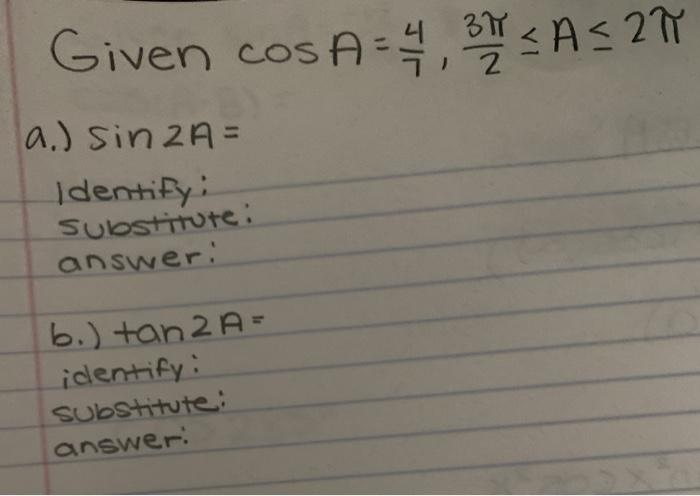 Given cos A = 4/7, 3π/2 ≤ A ≤ 2π
a.) sin 2A =
Identify:
substitute:
answer:
b.) tan 2A =
identify:
substitute:
answer: